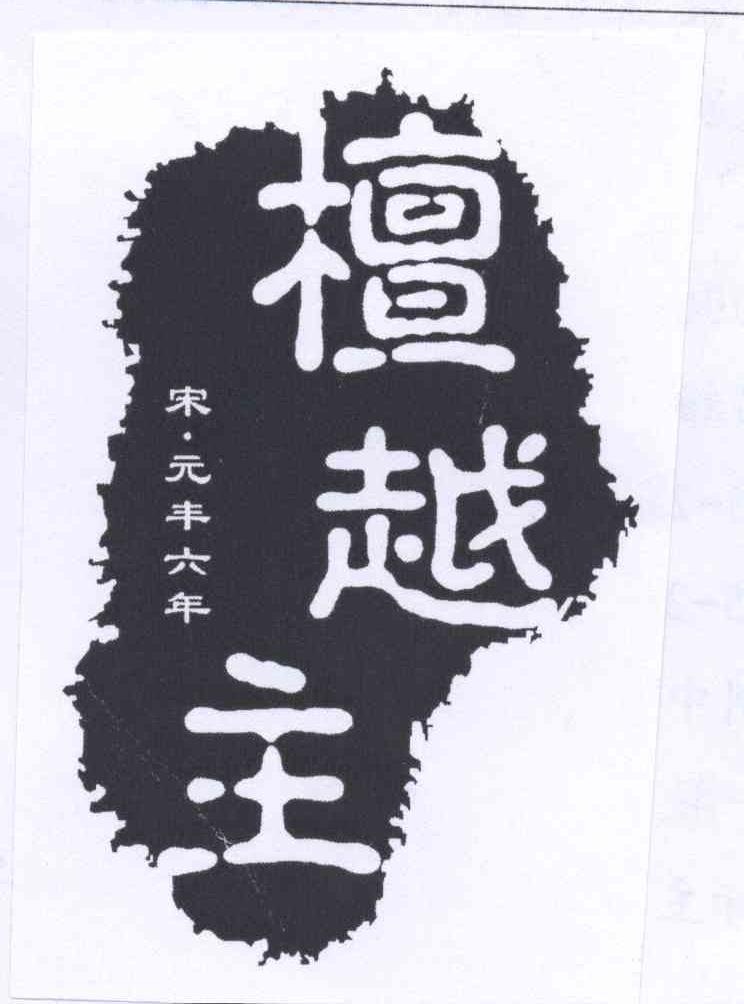 檀越主
宋·元丰六年